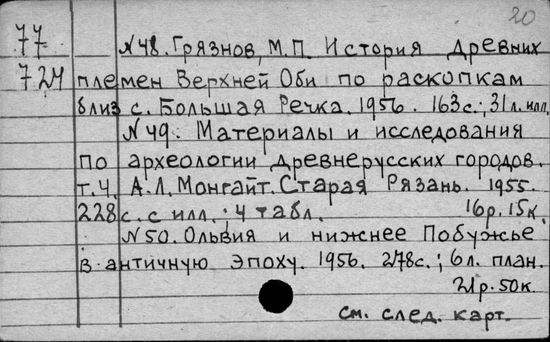 20
77
724
№48. Грязнов, М.П. История древних
племен Верхней Оби по раскопкам
близ с. Большая Речка. 1956. 163с.; 31л.илл.
№49. Материалы и исследования
по археологии древнерусских городов.
т.4. А.Л.Монгайт. Старая Рязань. 1955.
228с. с илл.; 4 табл. 16р.15к.
№50. Ольвия и нижнее Побужье
в античную эпоху. 1956. 278с.; 6л. план.
21р.50к.
см. след. карт.